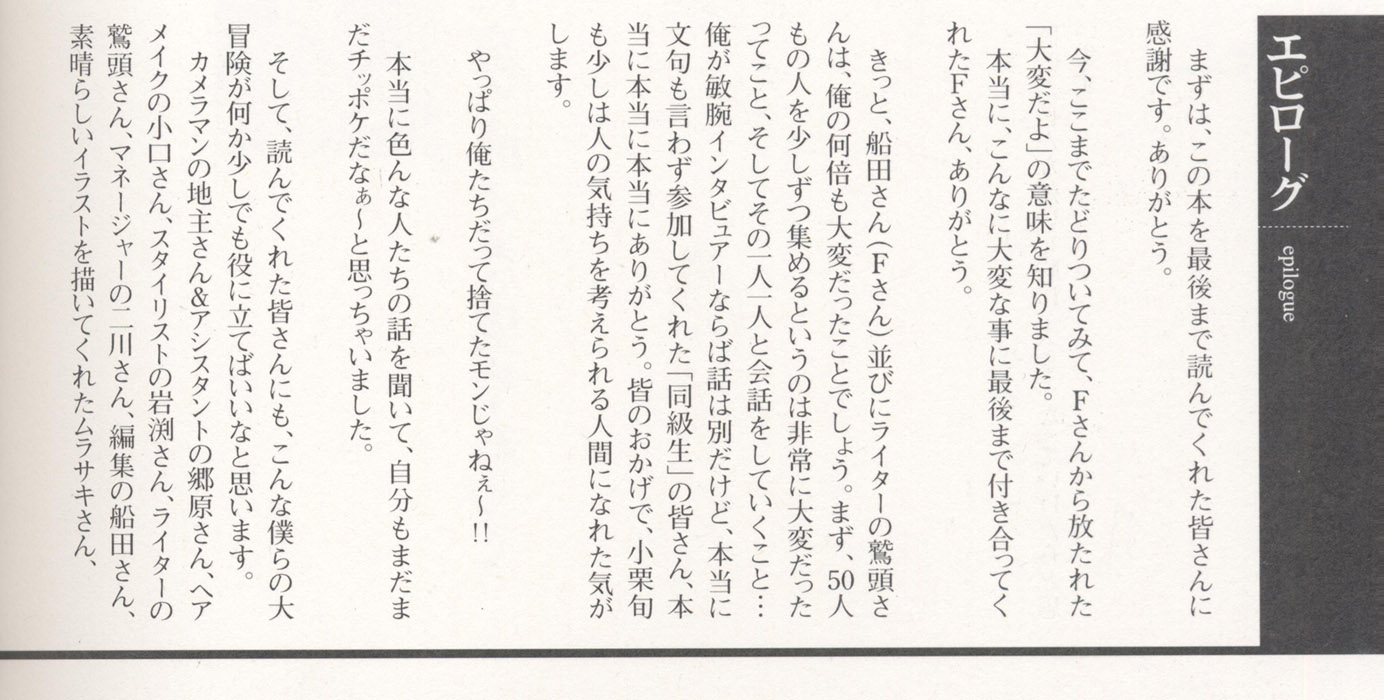 エピローグ
epilogue
まずは、この本を最後まで読んでくれた皆さんに
感謝です。ありがとう。
今、ここまでたどりついてみて、Fさんから放たれた
「大変だよ」の意味を知りました。
本当に、こんなに大変な事に最後まで付き合ってく
れたFさん、ありがとう。
きっと、船田さん(Fさん)並びにライターの鷲頭さ
んは、俺の何倍も大変だったことでしょう。まず、50人
もの人を少しずつ集めるというのは非常に大変だった
ってこと、そしてその一人一人と会話をしていくこと…
俺が敏腕インタビュアーならば話は別だけど、本当に
文句も言わず参加してくれた「同級生」の皆さん、本
当に本当に本当にありがとう。皆のおかげで、小栗旬
も少しは人の気持ちを考えられる人間になれた気が
します。
やっぱり俺たちだって捨てたモンじゃねぇ〜!!
本当に色んな人たちの話を聞いて、自分もまだま
だチッポケだなぁ〜と思っちゃいました。
そして、読んでくれた皆さんにも、こんな僕らの大
冒険が何か少しでも役に立てばいいなと思います。
カメラマンの地主さん&アシスタントの郷原さん、ヘア
メイクの小口さん、スタイリストの岩渕さん、ライターの
鷲頭さん、マネージャーの二川さん、編集の船田さん、
素晴らしいイラストを描いてくれたムラサキさん、